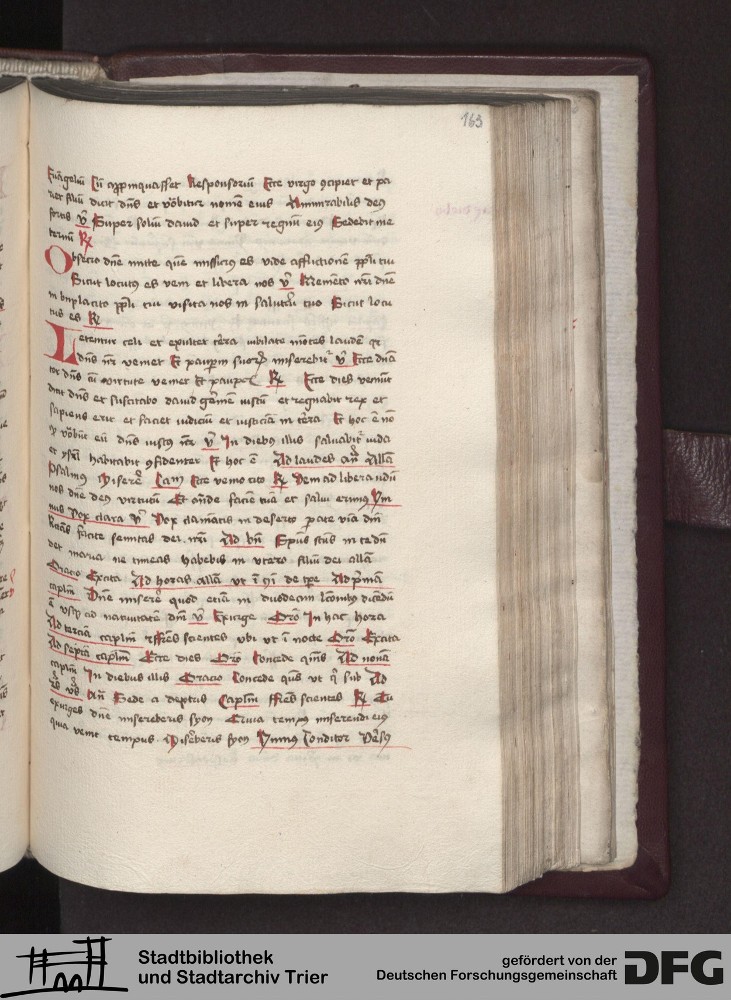 163
Ewãgeliũ Cũ app̃inquasset Responsoriũ Ecce virgo ꝯcipiet et pa
riet filiũ dicit dñs et võbitur nomẽ eius Admirabilis deꝯ
fortis v̊ Super soliũ dauid et super regnũ eiꝯ Sedebit in e
ternũ R̷
Obsecro dñe mitte quẽ missurꝯ es vide afflictionẽ pp̃li tui
Sicut locutꝯ es veni et libera nos v̊ Memẽto nr̃i dñe
in bñplacito pp̃li tui visita nos in salutari tuo Sicut locu
tus es R̷
Letentur celi et exultet tẽra iubilate mõtes laudẽ qr
dñs nr̃ veniet Et pauperũ suorꝝ miserebitr v̊ Ecce dñã
tor dñs cũ virtute veniet Et pauper R̷ Ecce dies veniũt
dicit dñs et suscitabo dauid germẽ iustũ et regnabit rex et
sapiens erit et faciet iudiciũ et iusticiã in tẽra Et hoc ẽ nõ
qꝫ võbũt eũ dñs iustꝯ nr̃ v̊ In diebꝯ illis saluabitr iuda
et ysrl̃ habitabit ꝯfidenter Et hoc ẽ Ad laudes añ Allã
Psalmꝯ Miserẽ Cam Ecce venio cito R̷ Veni ad liberandũ
nos dñe deꝯ virtutũ Et oñde faciẽ tuã et salui erimꝯ ym
nus Vox clara v̊ Vox clamãtis in deserto parate viã dñi
Rectas facite semitas dei nr̃i Ad bñ Spũs sc̃tus in te dñ
det maria ne timeas habebis in vtero filiũ dei allã
Oracio Excita Ad horas allã vt ĩ de tp̃e Ad prĩmã
caplm Dñe miserẽ quod etiã in duodecim lc̃onibꝯ dicẽdũ
ẽ vsqꝫ ad natiuitatẽ dñi v̊ Exurge Or̃o In hac hora
Ad terciã caplm ffrẽs scientes vbi vt ĩ nocte Or̃o Excita
Ad sextã caplm Ecce dies Or̃o Concede qm̃s Ad nonã
caplm In diebus illis Oracio Concede qs̃ vt q̃ sub Ad
Añ Sede a dextris Caplm ffrẽs scientes R̷ Tu
exurges dñe misereberis syon Quia tempꝯ miserendi eiꝯ
quia venit tempus Misereberis syon Ymnꝯ Conditor Versꝯ
Stadtbibliothek
und Stadtarchiv Trier
gefördert von der
Deutschen Forschungsgemeinschaft
DFG